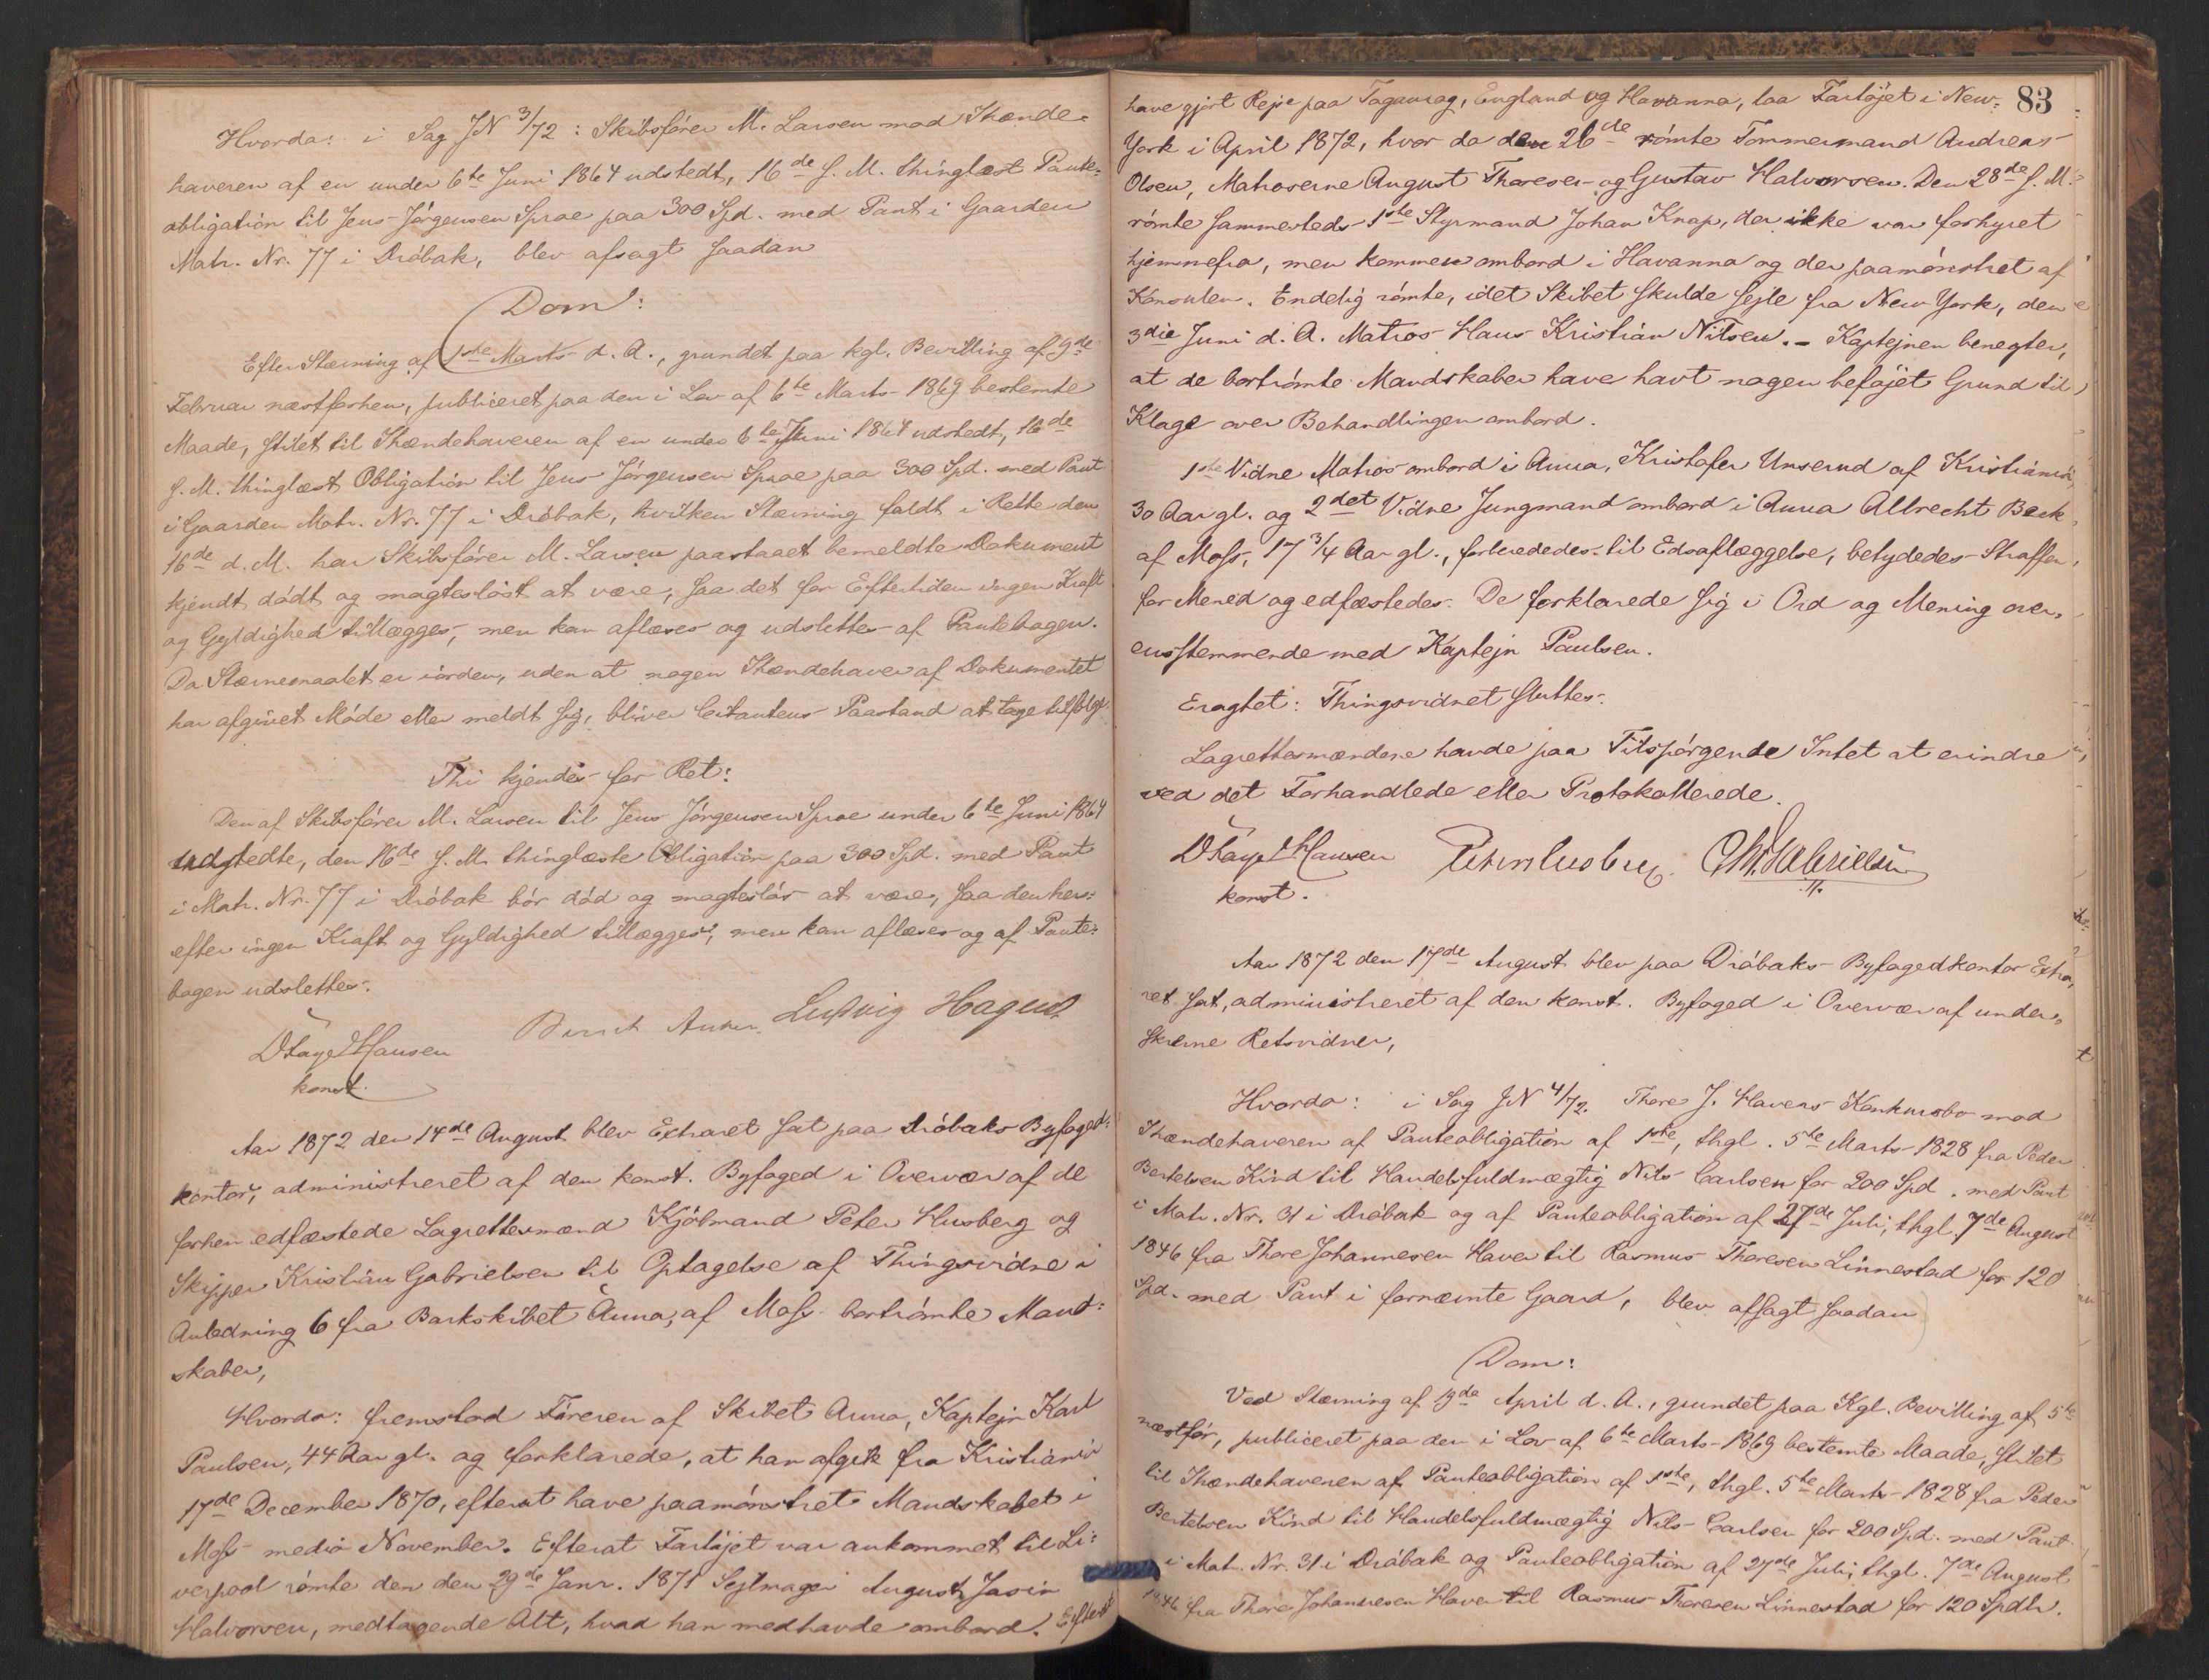 Hvorda: i Sag JN 3/72: Skibsfører M. Larsen mod Ihænde-
haveren af en under 6te Juni 1864 udstedt, 16de s. M. thinglæst Pante-
obligation til Jens Jørgensen Sproe paa 300 Spd. med Pant i Gaarden
Matr. Nr. 77 i Drøbak, blev afsagt saadan
Dom:
Efter Stævning af 1ste Marts d. A., grundet paa kgl. Bevilling af 9de
Februar næstforhen, publiceret paa den i Lov af 6te Marts 1869 bestemte
Maade, stilet til Ihændehaveren af en under 6te Juni 1864 udstedt, 16de
s. M. thinglæst Obligation til Jens Jørgensen Sproe paa 300 Spd. med Pant
i Gaarden Matr. Nr. 77 i Drøbak, hvilken Stævning faldt i Rette den
16de d. M. har Skibsfører M. Larsen paastaaet bemeldte Dokument
kjendt dødt og magtesløst at være, saa det for Eftertiden ingen Kraft
og Gyldighed tillægges, men kan aflæses og udslettes af Pantebogen.
Da Stævnemaalet er iorden, uden at nogen Ihændehaver af Dokumentet
har afgivet Møde eller meldt sig, bliver Citantens Paastand at tage tilfølge.
Thi kjendes for Ret:
Den af Skibsfører M. Larsen til Jens Jørgensen Sproe under 6te Juni 1864
udstedte, den 16de s. M. thinglæste Obligation paa 300 Spd. med Pant
i Matr. Nr. 77 i Drøbak bør død og magtesløs at være, saa den her-
efter ingen Kraft og Gyldighed tillægges, men kan aflæses og af Pante-
bogen udslettes.
D Faye Hansen Bernt Anker. Ludvig Hagens
konst.
Aar 1872 den 14de August blev Extraret sat paa Drøbaks Byfoged-
kontor, administreret af den konst. Byfoged i Overvær af de
forhen edfæstede Lagrettesmænd Kjøbmand Peter Husberg og
Skipper Kristian Gabrielsen til Optagelse af Thingsvidne i
Anledning 6 fra Barkskibet Anna, af Moss bortrømte Mand-
skaber,
Hvorda: fremstod Føreren af Skibet Anna, Kaptejn Karl
Paulsen, 44 Aar gl. og forklarede, at han afgik fra Kristiania
17de December 1870, efterat have paamønstret Mandskabet i
Moss medio November. Efterat Fartøjet var ankommet til Li-
verpool rømte den den 29de Janr. 1871 Sejlmager August Javin
Halvorsen, medtagende Alt, hvad han medhavde ombord. Efterat
83
have gjort Rejse paa Taganrog, England og Havanna, laa Fartøjet i New-
York i April 1872, hvor da den 26de rømte Tømmermand Andreas
Olsen, Matroserne August Thoresen og Gustav Halvorsen. Den 28de s. M.
rømte sammesteds 1ste Styrmand Johan Knap, der ikke var forhyret
hjemmefra, men kommen ombord i Havanna og der paamønstret af
Konsulen. Endelig rømte, idet Skibet skulde sejle fra New York, den
3die Juni d. A. Matros Hans Kristian Nilsen. - Kaptejnen benegter,
at de bortrømte Mandskaber have havt nogen beføjet Grund til
Klage over Behandlingen ombord.
1ste Vidne Matros ombord i Anna, Kristofer Unserud af Kristiania,
30 Aar gl. og 2det Vidne Jungmand ombord i Anna Albrecht Beck
af Moss, 17 3/4 Aar gl., forberededes til Edsaflæggelse, betydedes Straffen
for Mened og edfæstedes. De forklarede sig i Ord og Mening over-
ensstemmende med Kaptejn Paulsen.
Eragtet: Thingsvidnet sluttes.
Lagrettesmændene havde paa Tilspørgende Intet at erindre
ved det Forhandlede eller Protokollerede.
D Faye Hansen Peter Husberg. Chr. Gabrielsen
konst.
Aar 1872 den 17de August blev paa Drøbaks Byfogedkontor Extra-
ret sat, administreret af den konst. Byfoged i Overvær af under-
skrevne Retsvidner,
Hvorda: i Sag JN 4/72. Thore J. Havers Konkursbo mod
Ihændehaveren af Panteobligation af 1ste, thgl. 5te Marts 1828 fra Peder
Bertelsen Kind til Handelsfuldmægtig Nils Carlsen for 200 Spd. med Pant
i Matr. Nr. 31 i Drøbak og af Panteobligation af 27de Juli, thgl. 7de August
1846 fra Thore Johannesen Haver til Rasmus Thoresen Linnestad for 120
Spd. med Pant i fornævnte Gaard, blev afsagt saadan
Dom:
Ved Stævning af 19de April d. A., grundet paa Kgl. Bevilling af 5te
næstfør, publiceret paa den i Lov af 6te Marts 1869 bestemte Maade, stilet
til Ihændehaveren af Panteobligation af 1ste, thgl. 5te Marts 1828 fra Peder
Bertelsen Kind til Handelsfuldmægtig Nils Carlsen for 200 Spd. med Pant
i Matr. Nr. 31 i Drøbak og Panteobligation af 27de Juli, thgl. 7de August
1846 fra Thore Johannesen Haver til Rasmus Thoresen Linnestad for 120 Spdlr.